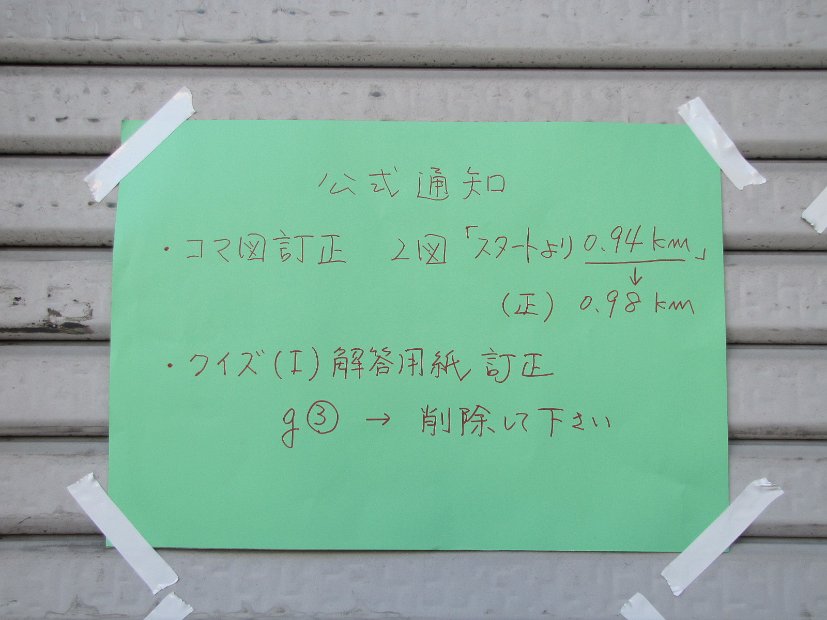 公式通知
・コマ図訂正 2図「スタートより0.94km」
↓
(正) 0.98km
・クイズ(I)解答用紙訂正
g③ → 削除して下さい